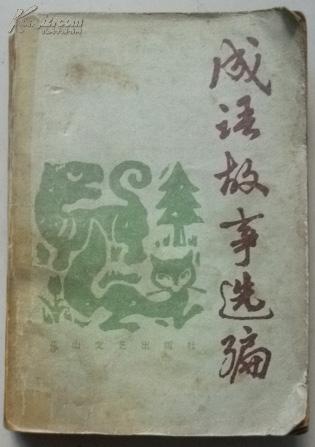 成语故事选编
山文艺出版社